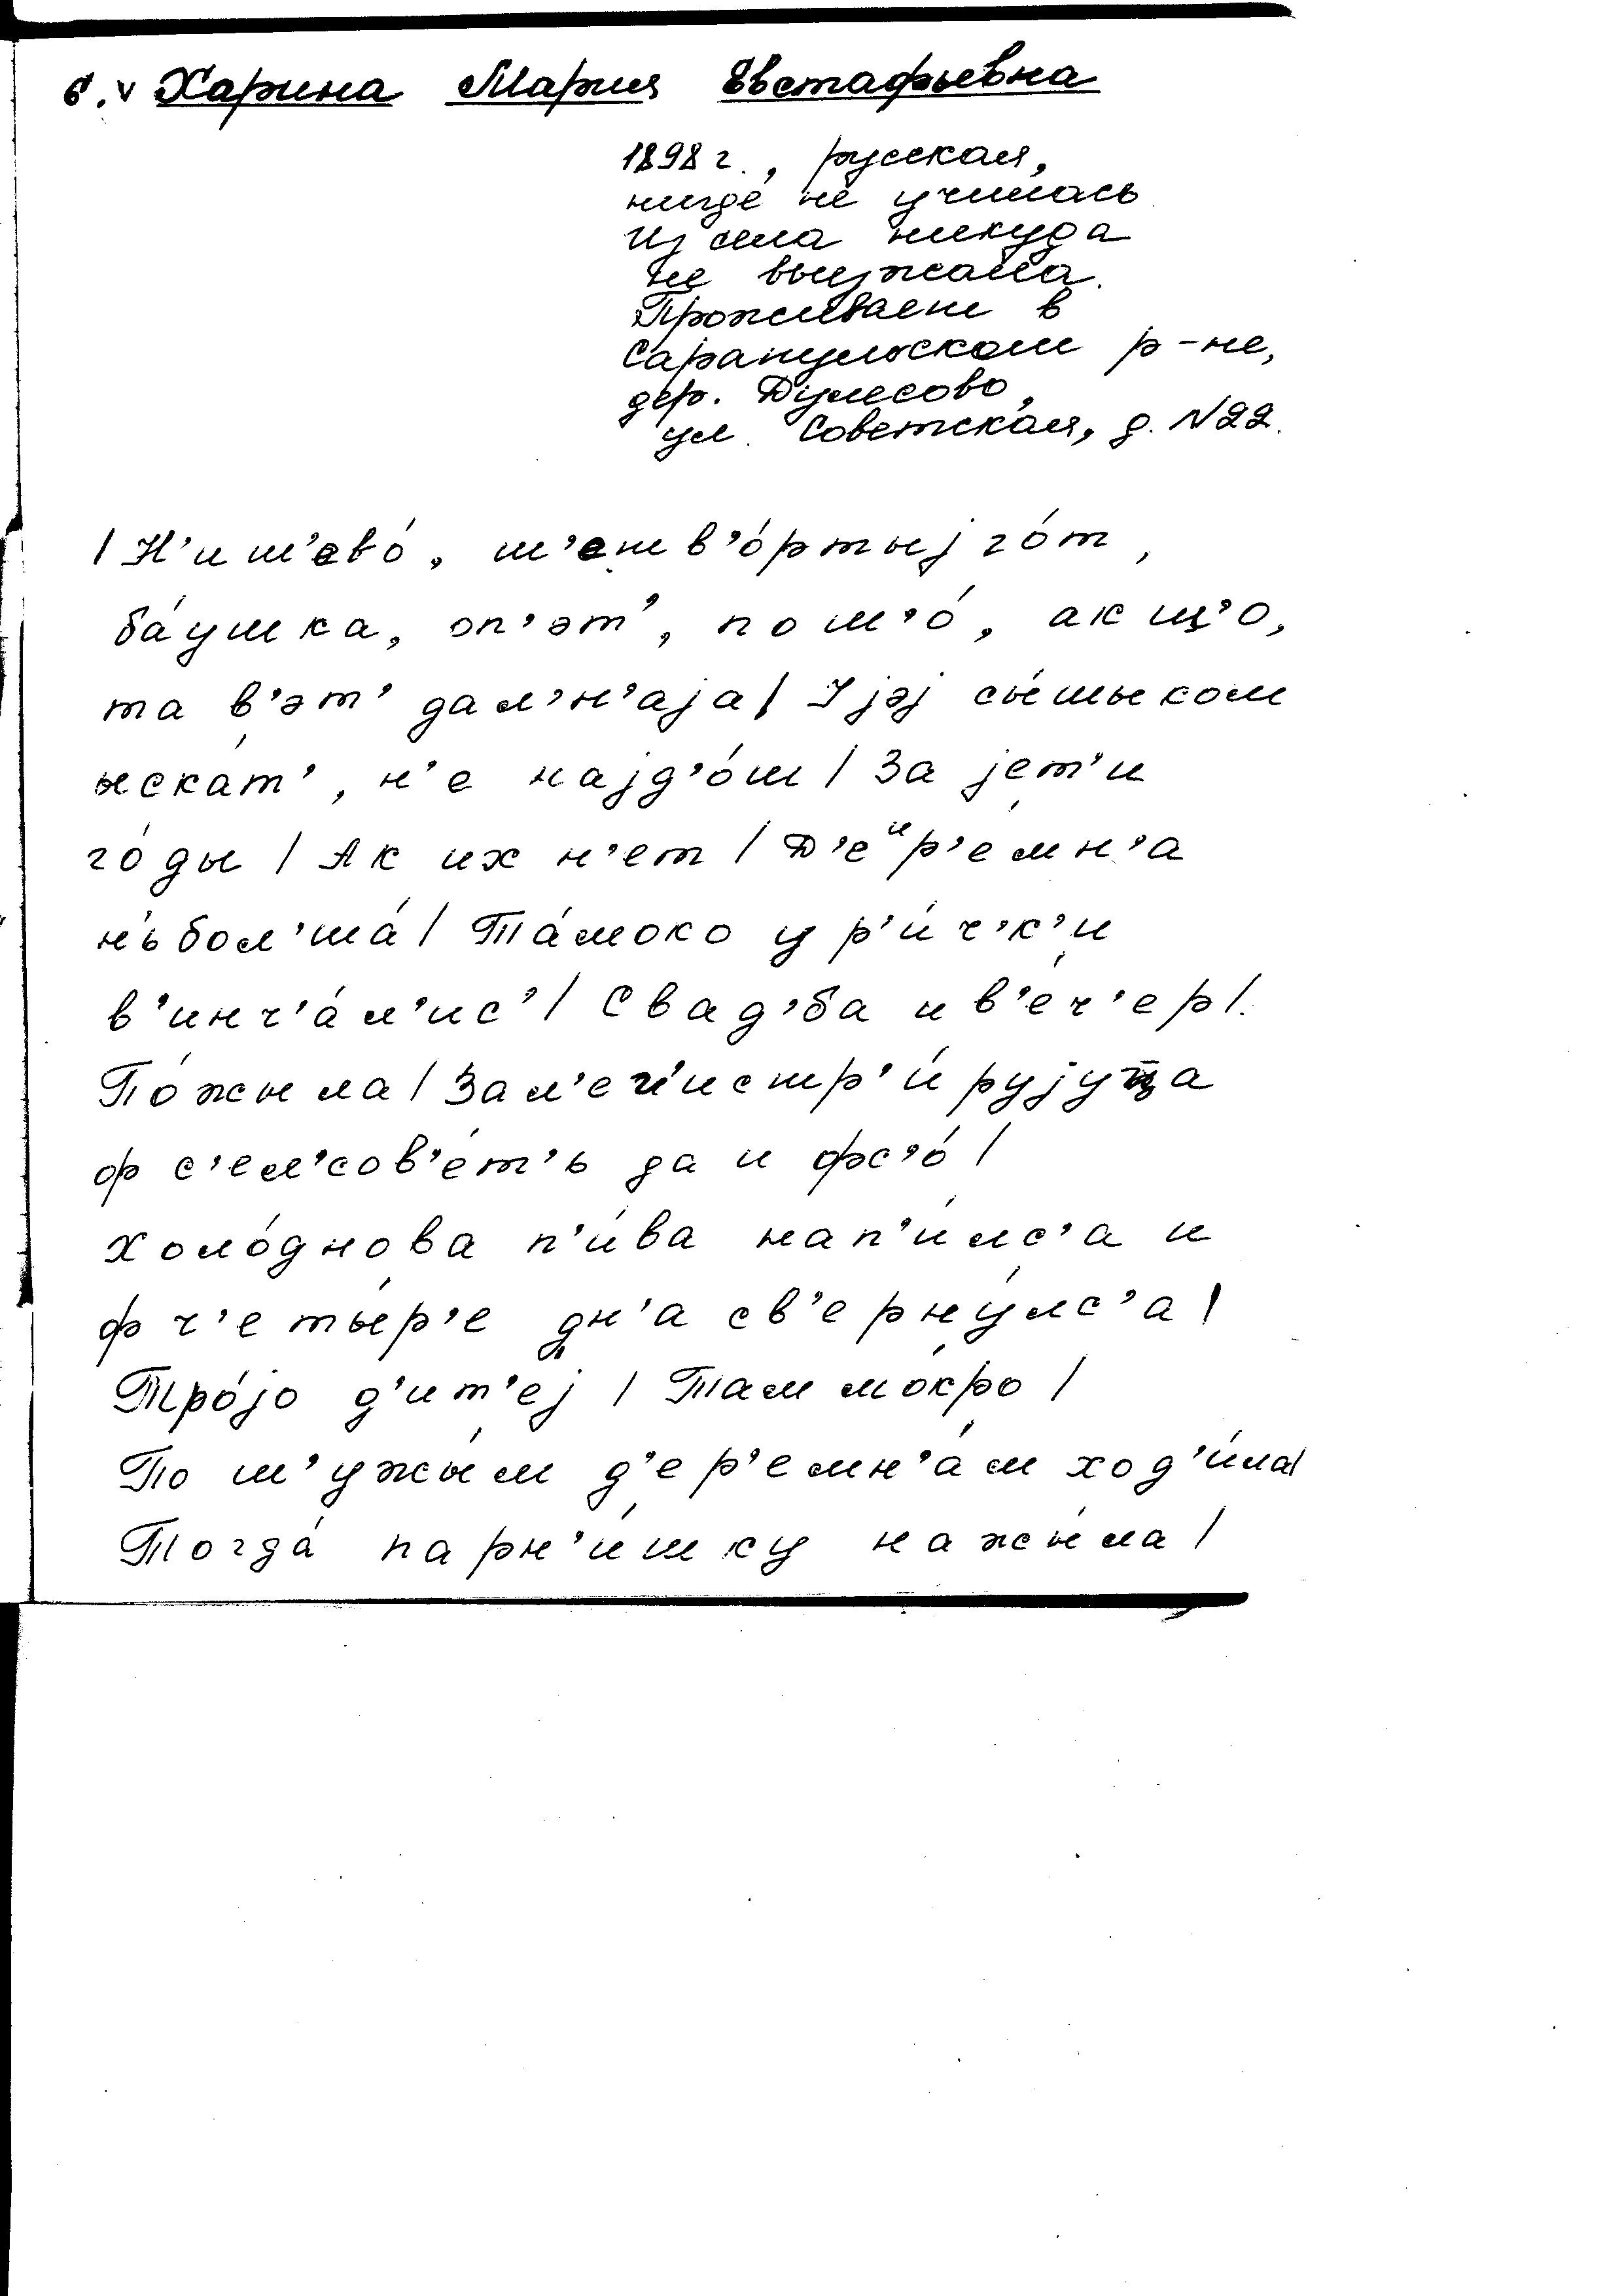 6. v Харина Мария Евстафьевна
1898 г., русская,
нигде не училась
Из села никуда
не выезжала.
Проживает в
Сарапульском р-не,
дер. Дулесово,
ул. Советская, д. №22.
| Н'иш'ево́, ш'етв'о́ртыј го́т,
ба́ушка, оп'эт', пош'о́, ак щ'о,
та в'эт' дал'н'аја| У јэј сы́шыком
ыска́т', н'е најд'о́ш | За јет'и
го́ды | Ак их н'ет | Д'еⁱр'е́мн'а
н'ьбол'ша́ | Та́моко у р'и́ч'к'и
в'инч'а́л'ис' | Свад'ба и в'е́ч'ер |.
По́жыла | Зал'еги́стр'и́рујуца
ф с'ел'сов'е́т'ь да и фс'о́ |
холо́днова п'и́ва нап'и́лс'а и
ф ч'еты́р'е дн'а св'ерну́лс'а |
Тро́јо д'ит'еј | Там мо́кро |
По ш'ужы́м д'ер'емн'а́м ход'и́ла|
Тогда́ парн'и́шку нажы́ла |